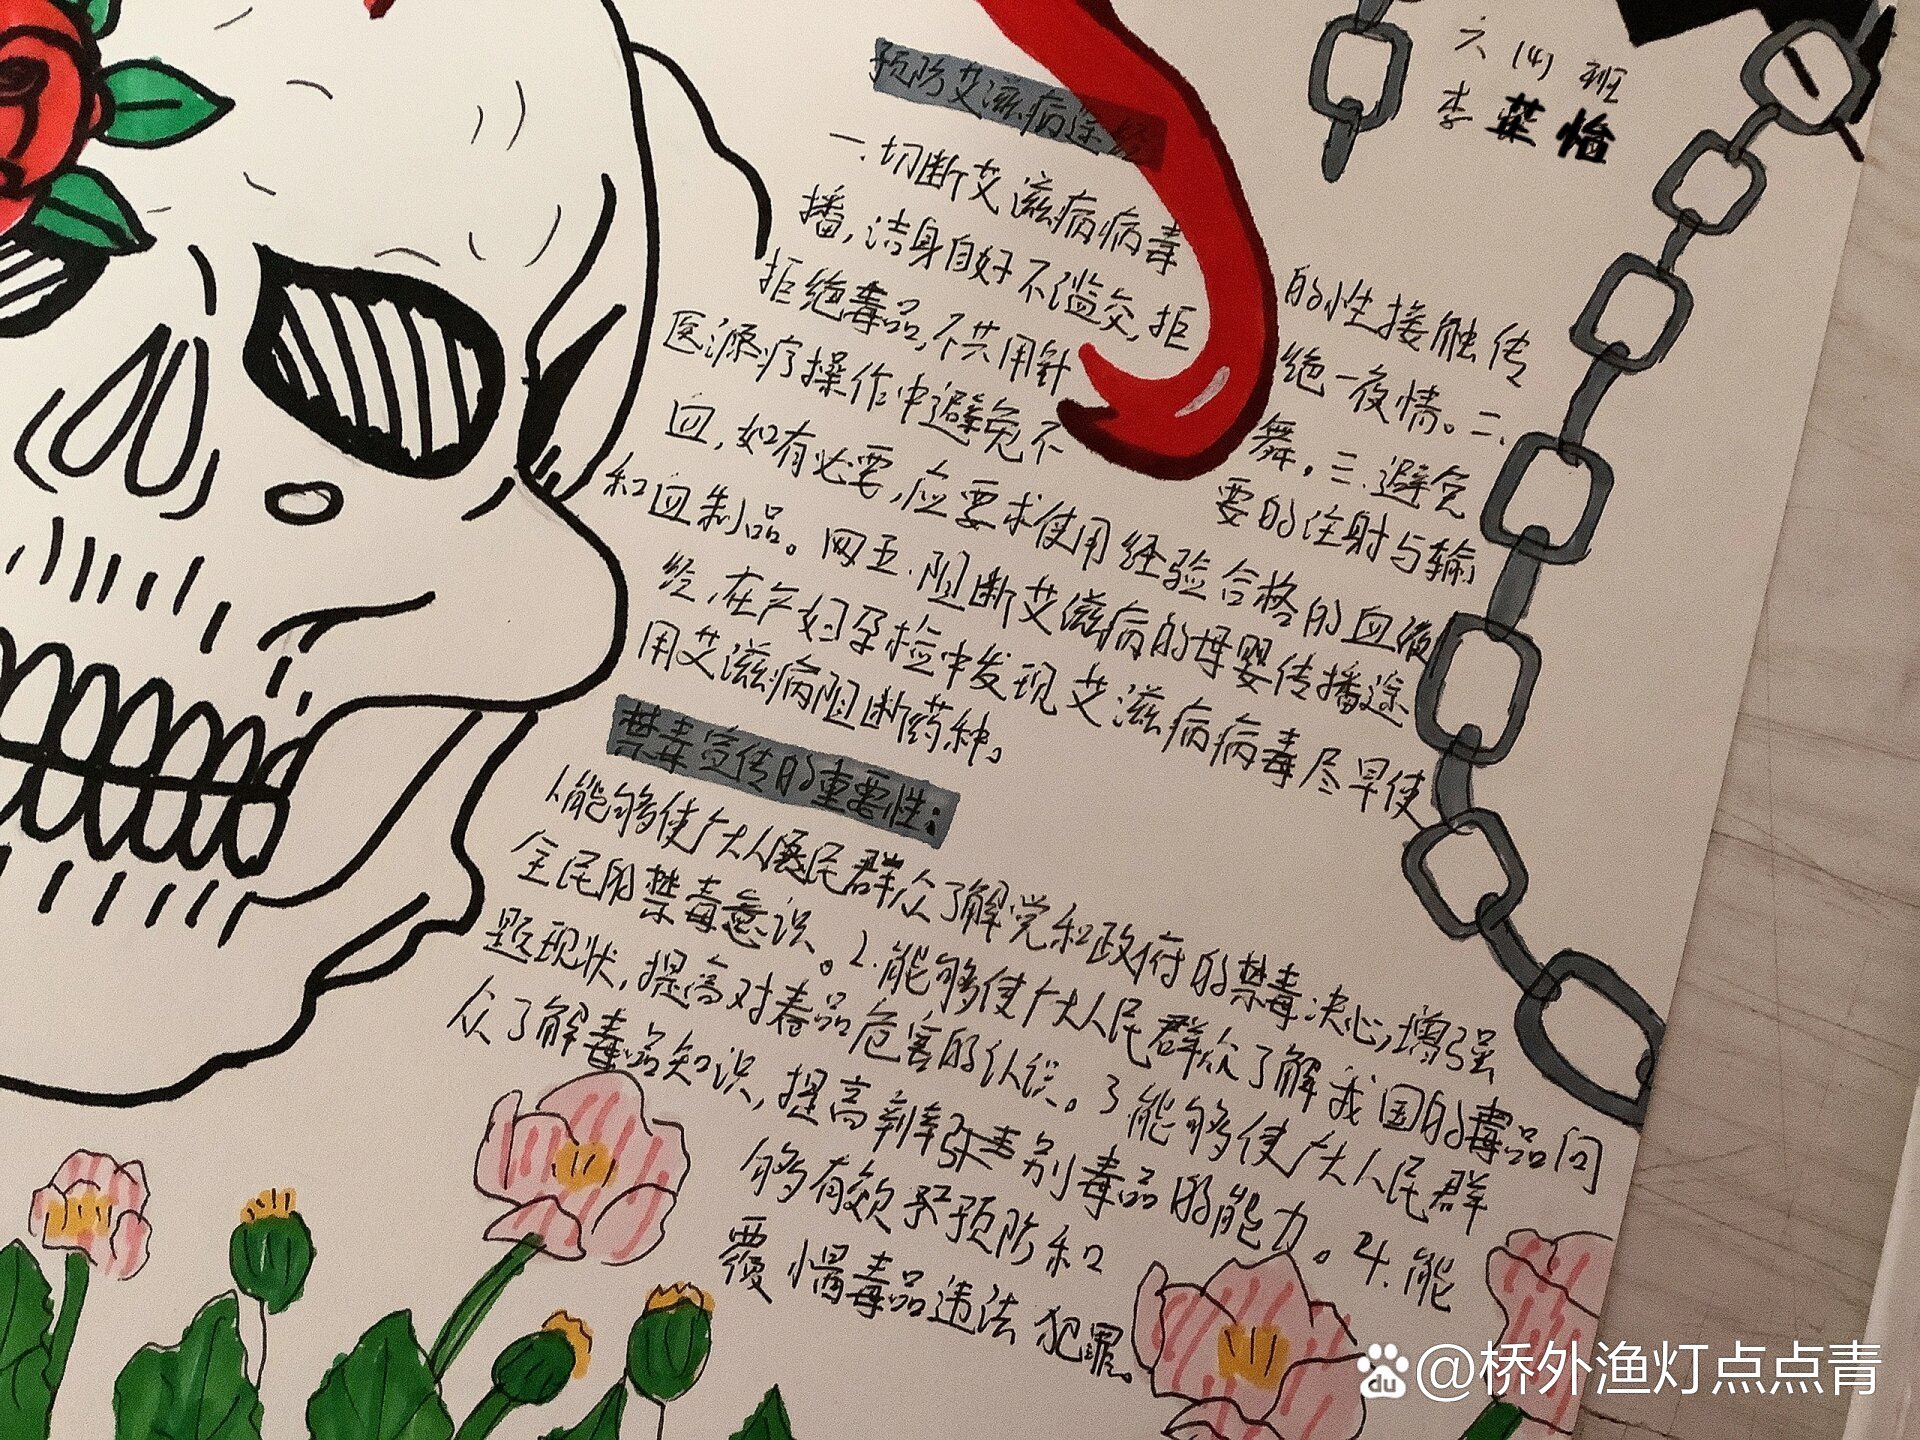 六(4)班
李
预防艾滋病途经
一.切断艾滋病病毒的性接触传
播,洁身自好不滥交,拒绝一夜情。二.
拒绝毒品,不共用针 。三.避免
医源疗操作中避免不要的注射与输
血,如有必要,应要求使用经验合格的血液
和血制品。四五.阻断艾滋病的母婴传播途
经,在产妇孕检中发现艾滋病病毒尽早使
用艾滋病阻断药神。
禁毒宣传的重要性:
1.能够使广大人民群众了解党和政府的禁毒决心,增强
全民的禁毒意识。2.能够使广大人民群众了解我国的毒品问
题现状,提高对毒品危害的认识。3能够使广大人民群
众了解毒品知识,提高辨别毒品的能力。4.能
够有效预防和
毒品违法犯罪。
du @桥外渔灯点点青